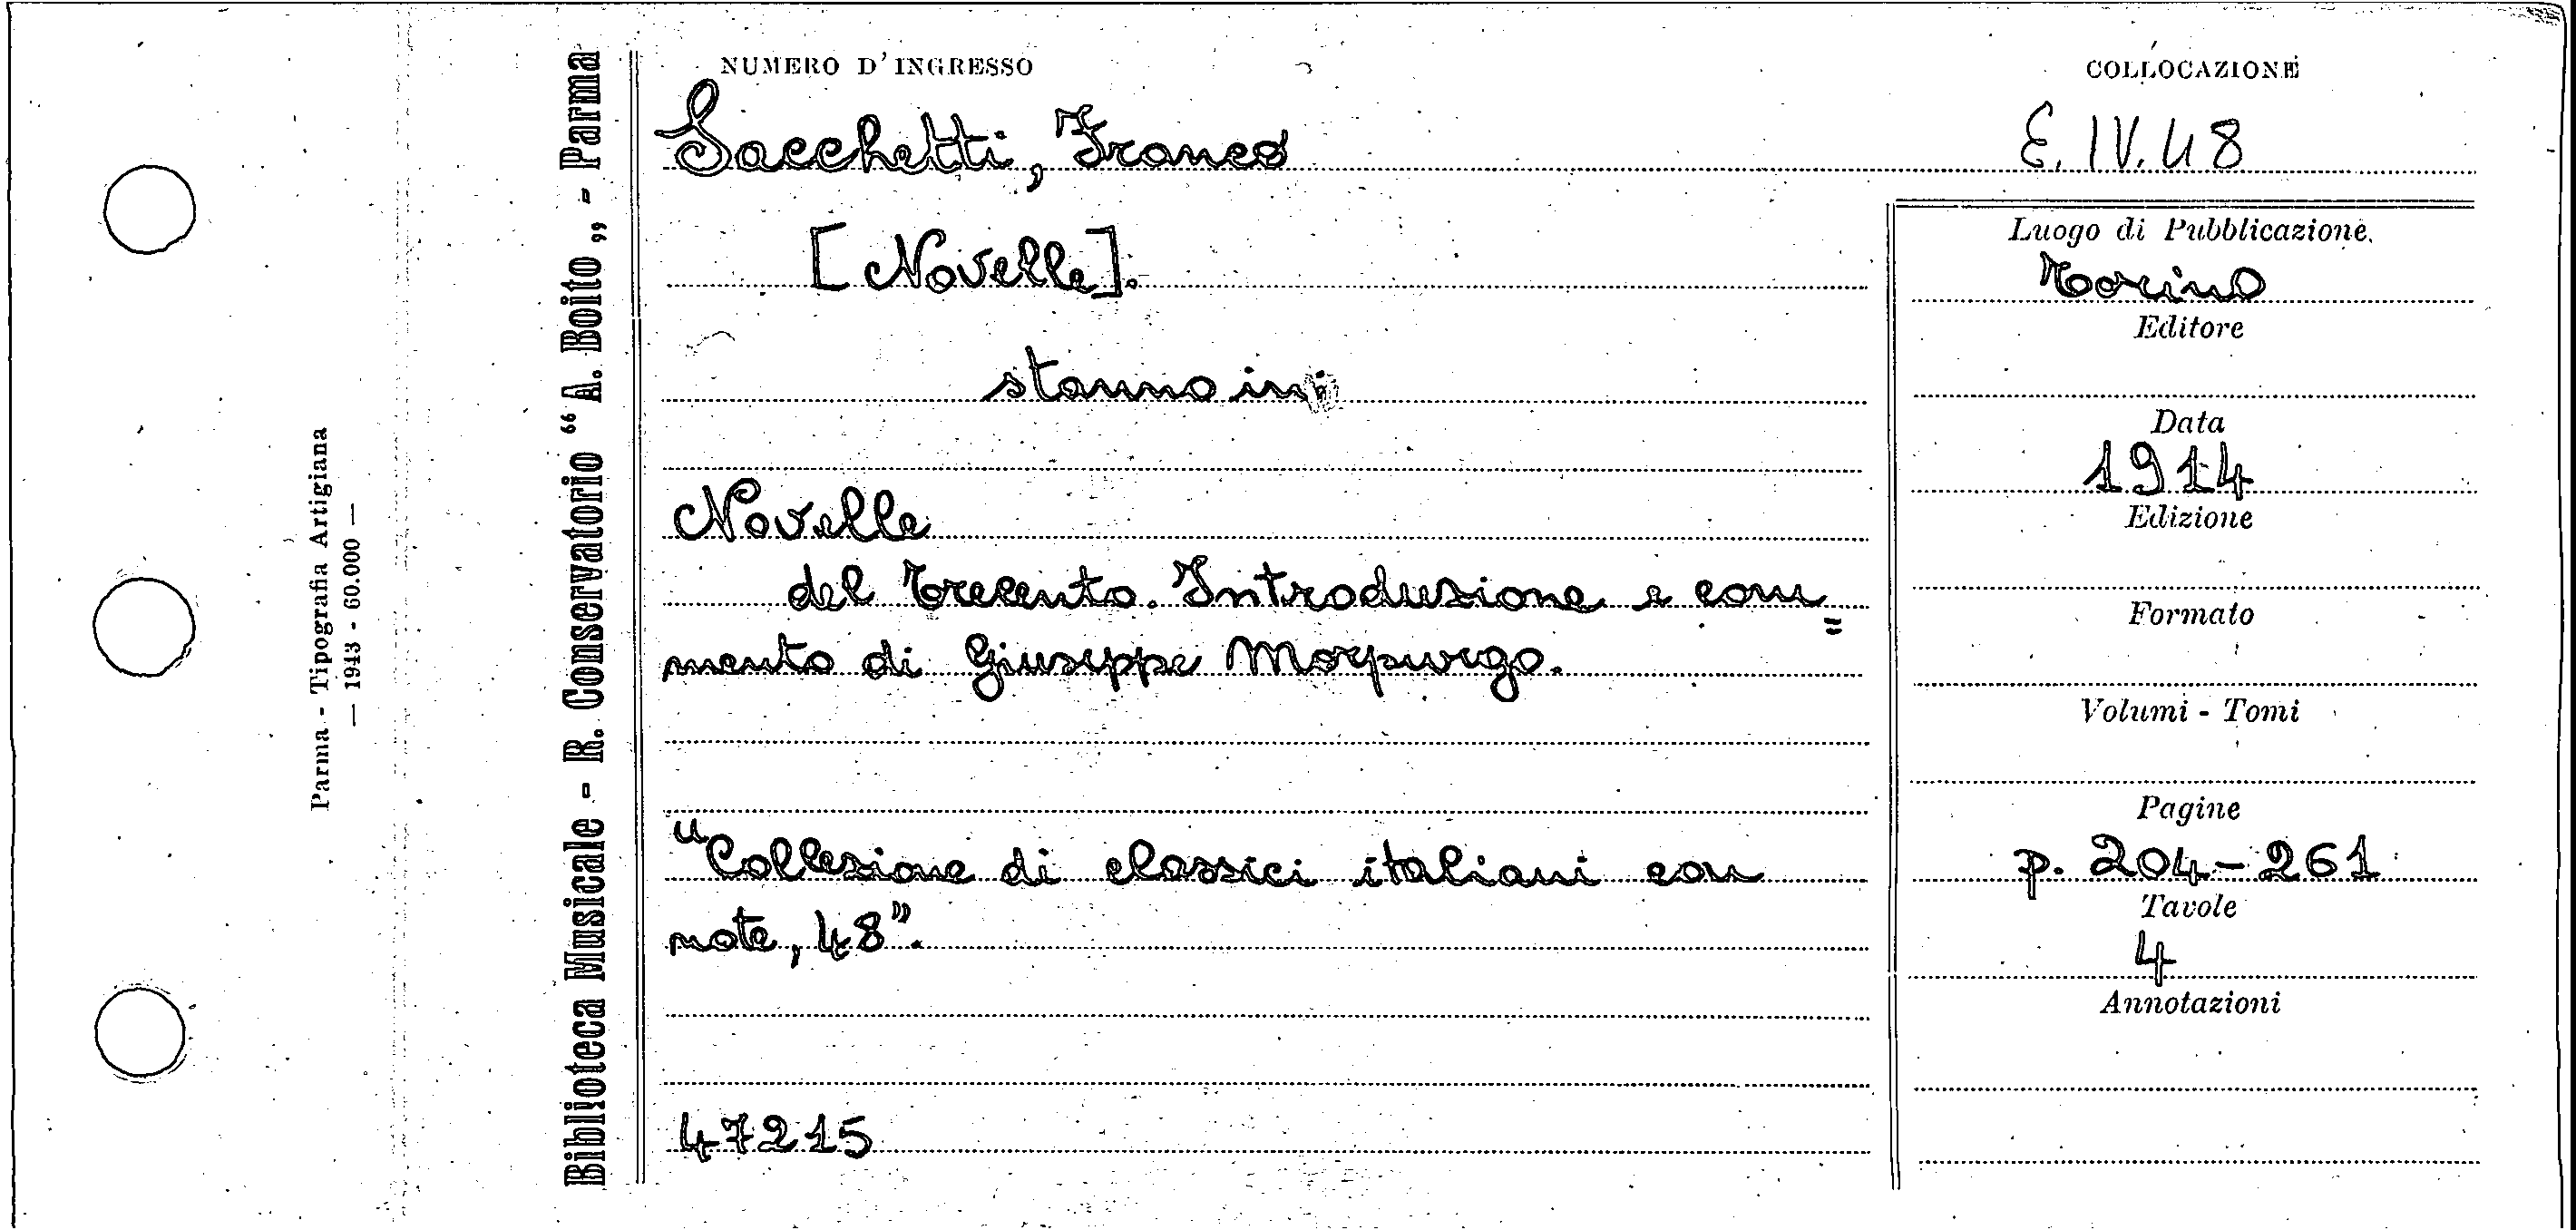 NUMERO D'INGRESSO
COLLOCAZIONE
Sacchetti, Franco
E. IV. 48
[Novelle].
stanno in:
Novelle
del Trecento. Introduzione e com=
mento di Giuseppe Morpurgo.
"Collezione di classici italiani con
note, 48".
47215
Luogo di Pubblicazione
Torino
Editore
Data
1914
Edizione
Formato
Volumi - Tomi
Pagine
p. 204-261
Tavole
4
Annotazioni
Biblioteca Musicale - R. Conservatorio "A. Boito„ - Parma
Parma - Tipografia Artigiana
— 1943 - 60.000 —